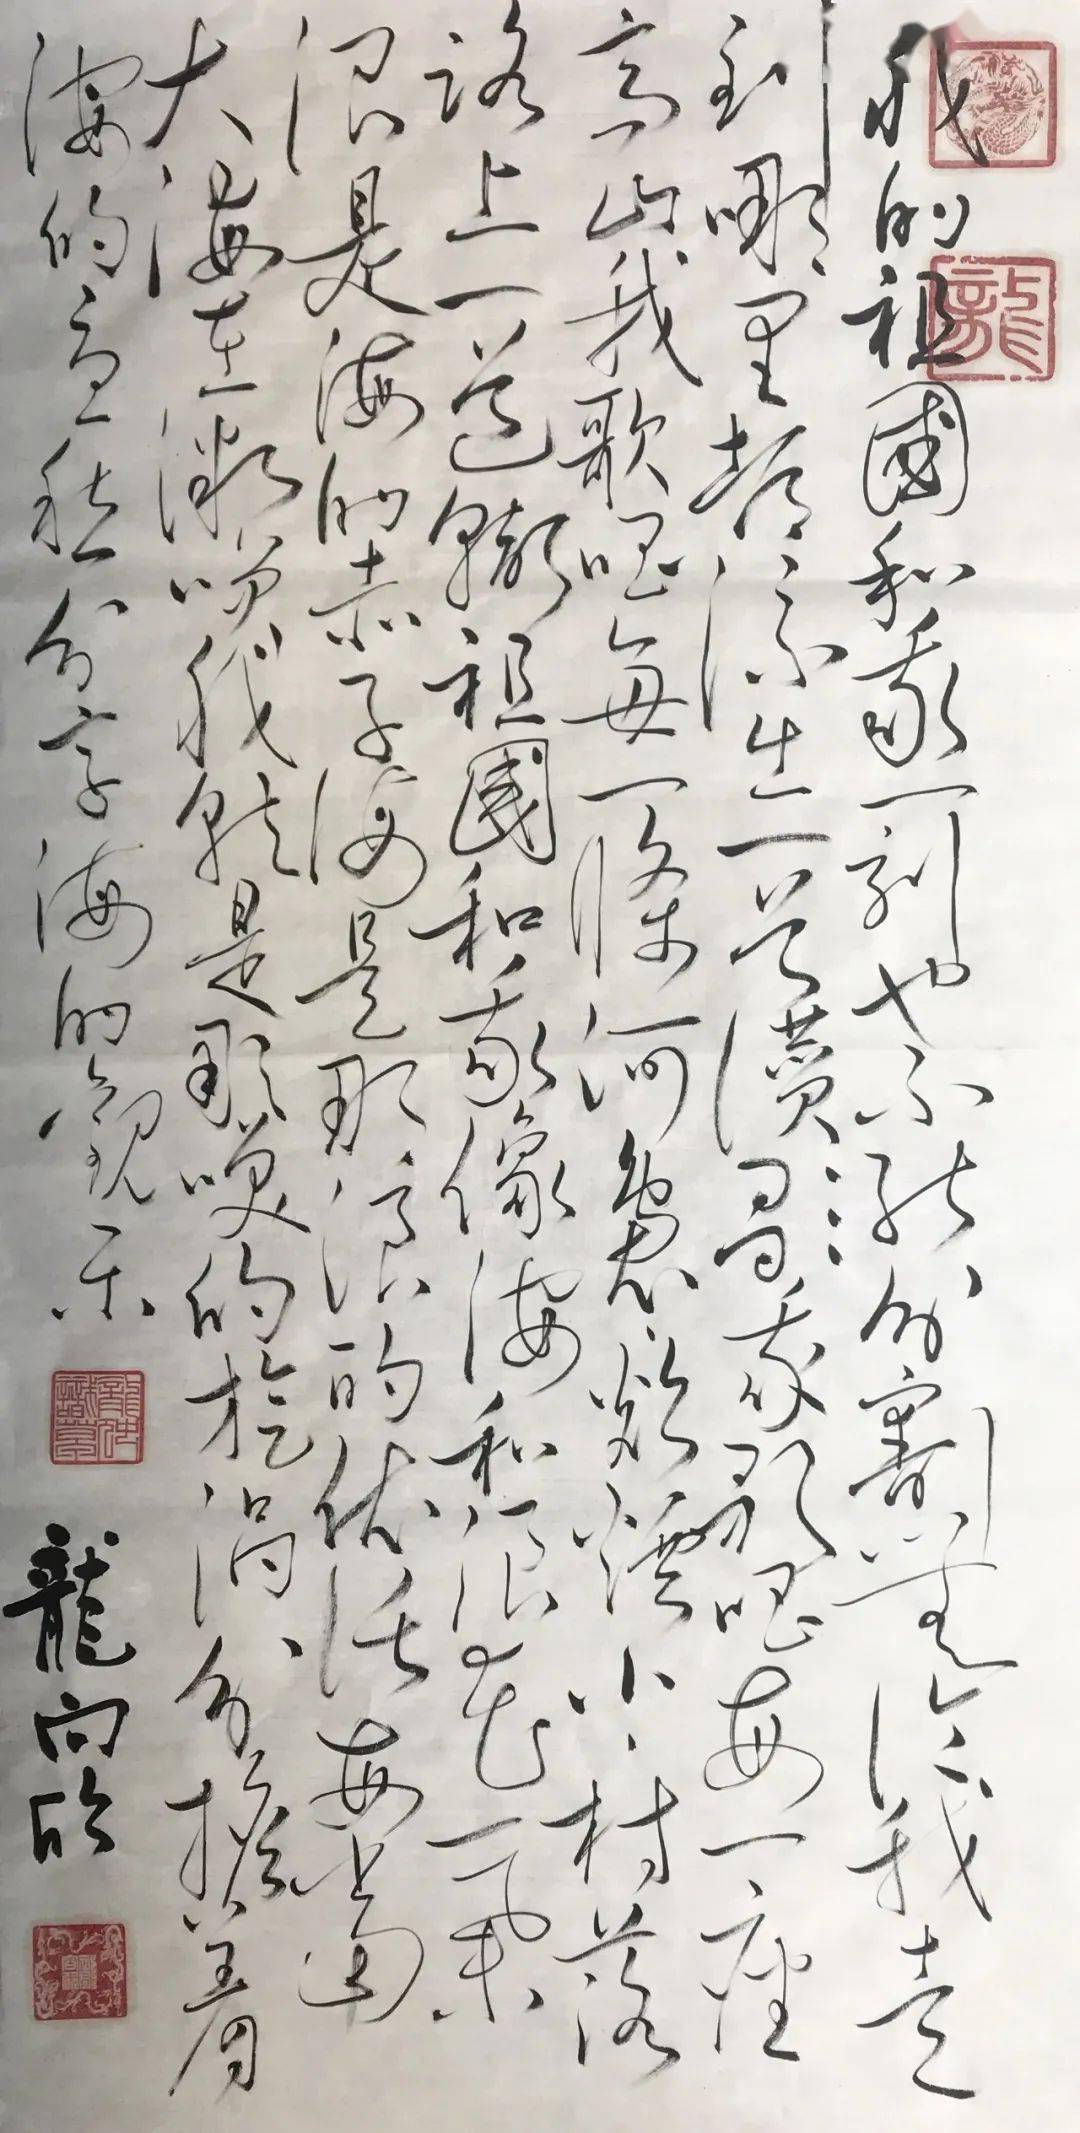 我的祖國和我一刻也不能分割無論我走
到哪里都流出一首讚哥我歌唱每一座
高山我歌唱每一條河裊裊炊煙小小村落
路上一道轍祖國和我像海和浪花一朵
浪是海的赤子海是那浪的依托每當
大海在微笑我就是那笑的旋渦分擔着
海的憂愁分享海的歡樂
龍向欣
龍